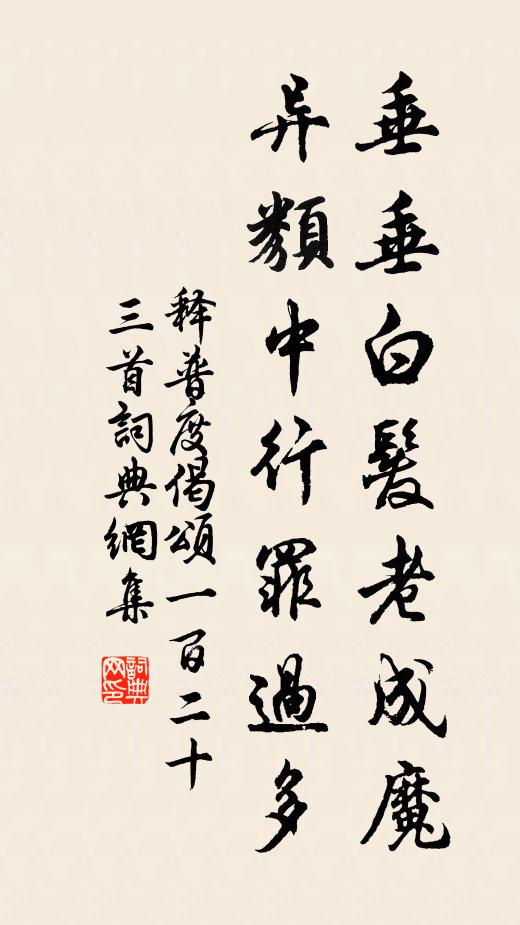 垂垂白髮老成魔
异類中行罪過多
释普度偈頌一百二十
三首詞典網集
詞典网印